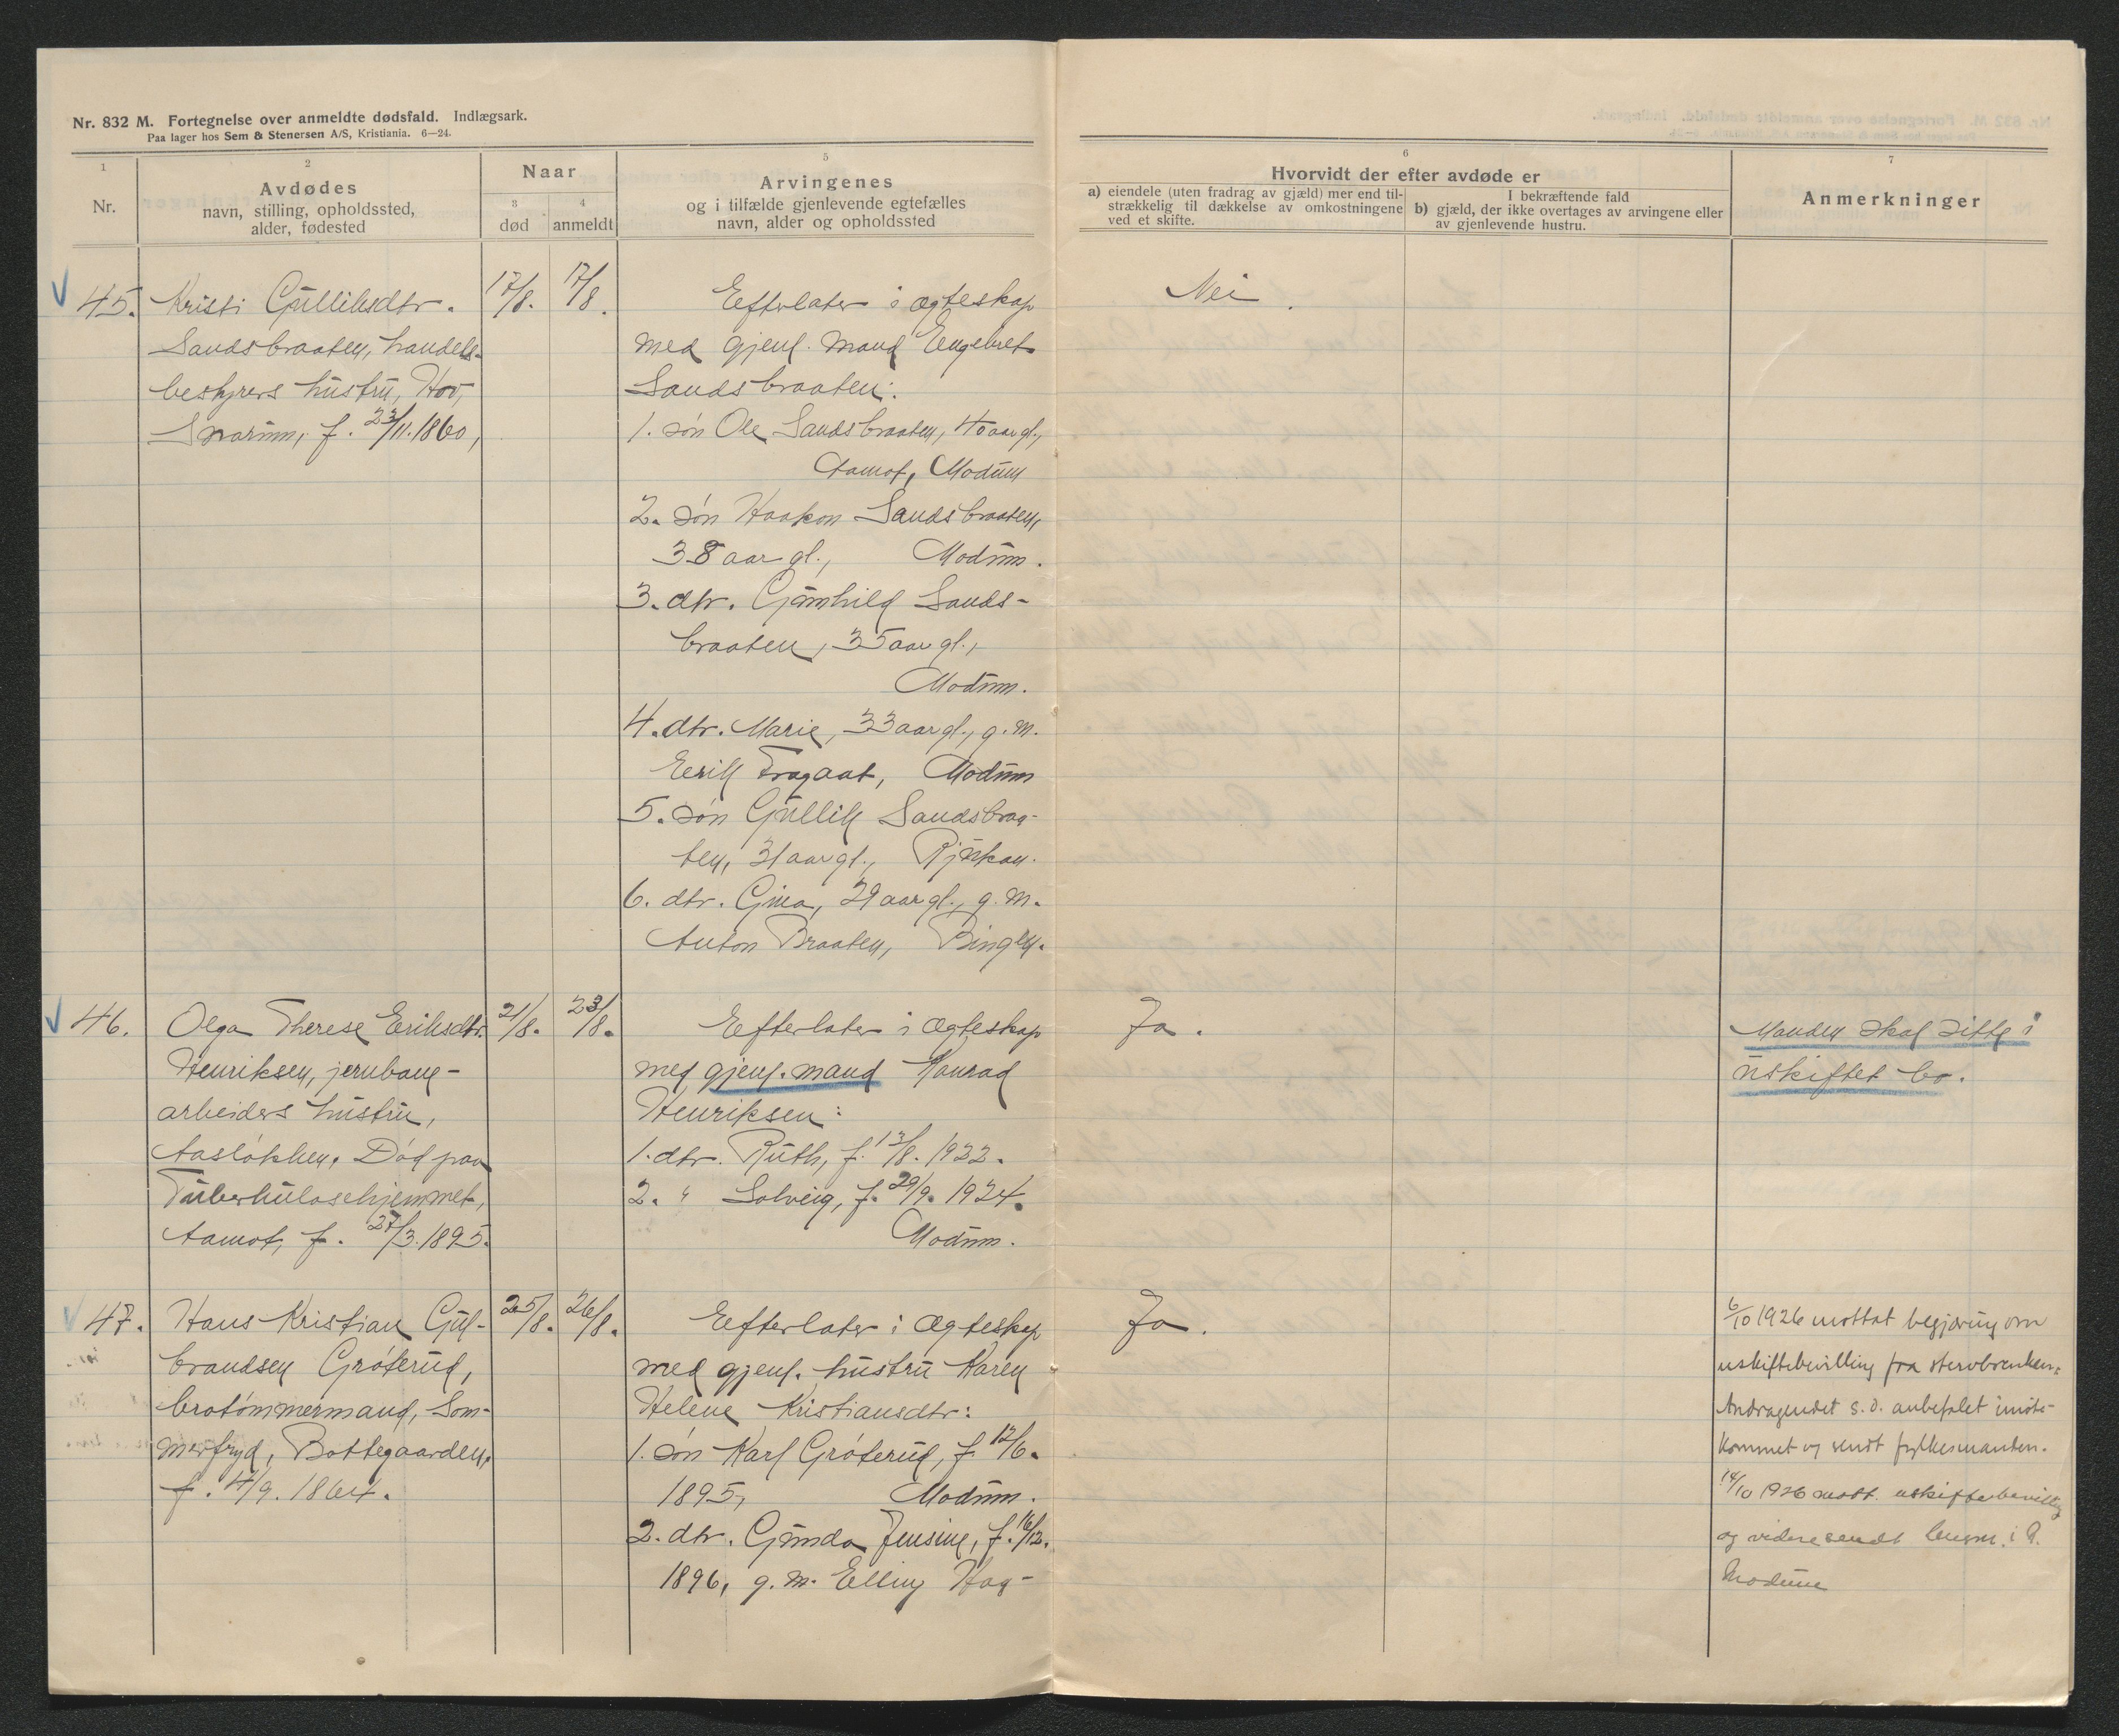 Nr. 832 M. Fortegnelse over anmeldte dødsfald. Indlægsark.
Paa lager hos Sem & Stenersen A/S, Kristiania. 6—24.
1
Nr.
2
Avdødes
navn, stilling, opholdssted,
alder, fødested
Naar
3
død
4
anmeldt
5
Arvingenes
og i tilfælde gjenlevende egtefælles
navn, alder og opholdssted
6
Hvorvidt der efter avdøde er
a) eiendele (uten fradrag av gjæld) mer end til-
strækkelig til dækkelse av omkostningene
ved et skifte.
I bekræftende fald
b) gjæld, der ikke overtages av arvingene eller
av gjenlevende hustru.
7
Anmerkninger
45.
Kristi Gulliksdtr.
Sandsbraaten, handels-
bestyrers hustru, Hov,
Snarum, f. 23/11.1860,
17/8.
17/8.
Efterlater i ægteskap
med gjenl. mand Engebret
Sandsbraaten:
1. søn Ole Sandsbraaten, 40 aar gl.,
Aamot, Modum
2. søn Haakon Sandsbraaten,
38 aar gl., Modum.
3. dtr. Gunhild Sands-
braaten, 35 aar gl.,
Modum.
4. dtr. Marie, 33 aar gl., g. m.
Erik Fragaat, Modum
5. søn Gullik Sandsbraa-
ten, 31 aar gl., Rjukan.
6. dtr. Gina, 29 aar gl., g. m.
Anton Braaten, Bingen.
Nei.
46.
Olga Therese Eriksdtr.
Henriksen, jernbane-
arbeiders hustru,
Aasløkken. Død paa
Tuberkulosehjemmet,
Aamot, f. 27/3.1895.
21/8.
23/8.
Efterlater i ægteskap
med gjenl. mand Konrad
Henriksen:
1. dtr. Ruth, f. 13/8. 1922.
2. " Solveig, f. 29/9. 1924.
Modum.
Ja.
Manden skal sitte i
uskiftet bo.
47.
Hans Kristian Gul-
brandsen Grøterud,
brotømmermand, Som-
merfryd, Bottegaarden,
f. 4/9. 1864.
25/8.
26/8.
Efterlater i ægteskap
med gjenl. hustru Karen
Helene Kristiansdtr:
1. søn Karl Grøterud, f. 12/6.
1895, Modum.
2. dtr. Gunda Jensine, f. 16/12.
1896, g. m. Elling Hag-
Ja.
6/10 1926 mottat begjæring om
uskiftebevilling fra stervboenken.
Andragendet s. d. anbefalet imøte-
kommet og sendt fylkesmanden.
14/10 1926 mott. uskiftebevilling
og videresendt lensm. i
Modum